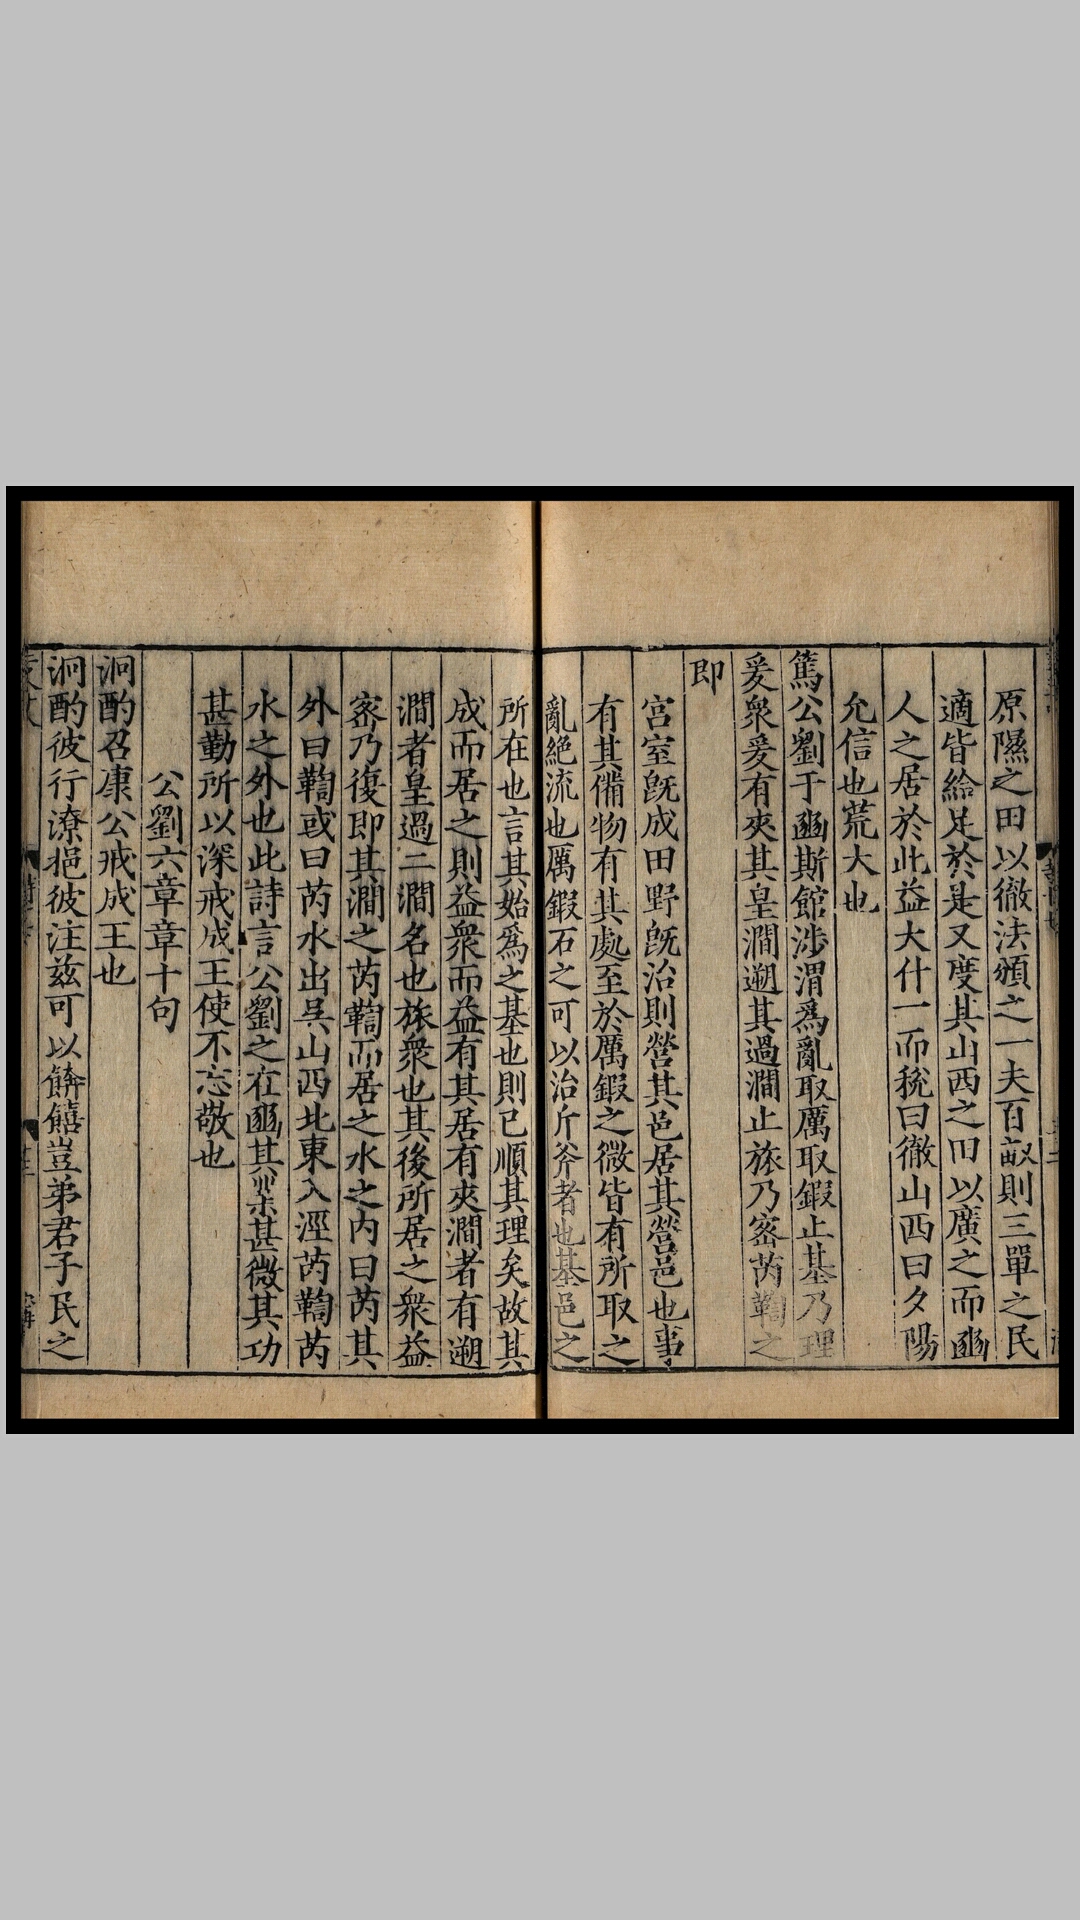 原隰之田以徹法頒之一夫百畝則三單之民
適皆給足於是又度其山西之田以廣之而豳
人之居於此益大什一而稅曰徹山西曰夕陽
允信也荒大也
篤公劉于豳斯館涉渭爲亂取厲取鍜止基乃理
爰衆爰有夾其皇澗遡其過澗止旅乃宻芮鞫之
即
宫室旣成田野旣治則營其邑居其營邑也事
有其備物有其處至於厲鍜之微皆有所取之
亂絕流也厲鍜石之可以治斤斧者也基邑之
所在也言其始爲之基也則已順其理矣故其
成而居之則益衆而益有其居有夾澗者有遡
澗者皇過二澗名也旅衆也其後所居之衆益
宻乃復即其澗之芮鞫而居之水之内曰芮其
外曰鞫或曰芮水出吳山西北東入涇芮鞫芮
水之外也此詩言公劉之在豳其業甚微其功
甚勤所以深戒成王使不忘敬也
公劉六章章十句
泂酌召康公戒成王也
泂酌彼行潦挹彼注兹可以餴饎豈弟君子民之